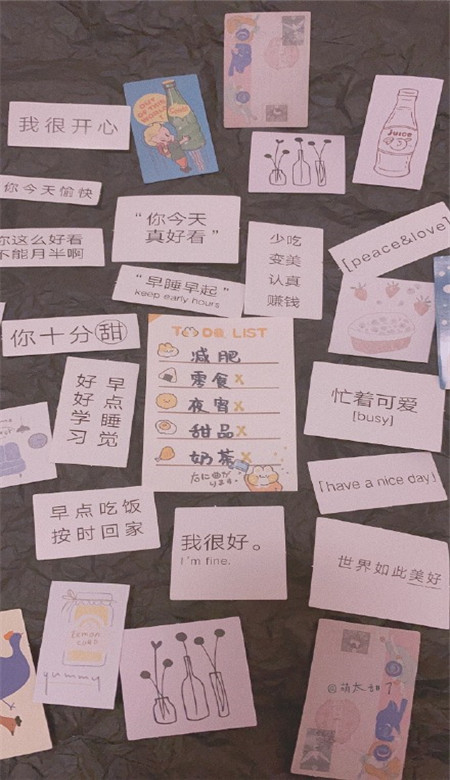 OUT OF THIS WORLD
我很开心
Juice
你今天愉快
"你今天
真好看"
你这么好看
不能月半啊
少吃
变美
认真
赚钱
[peace&love]
"早睡早起"
keep early hours
你十分甜
TO DO LIST
减肥
零食X
夜宵X
甜品X
奶茶X
好好学习
早点睡觉
忙着可爱
[busy]
「have a nice day」
早点吃饭
按时回家
我很好。
I'm fine.
世界如此美好
LEMON
yummy
@萌太甜了